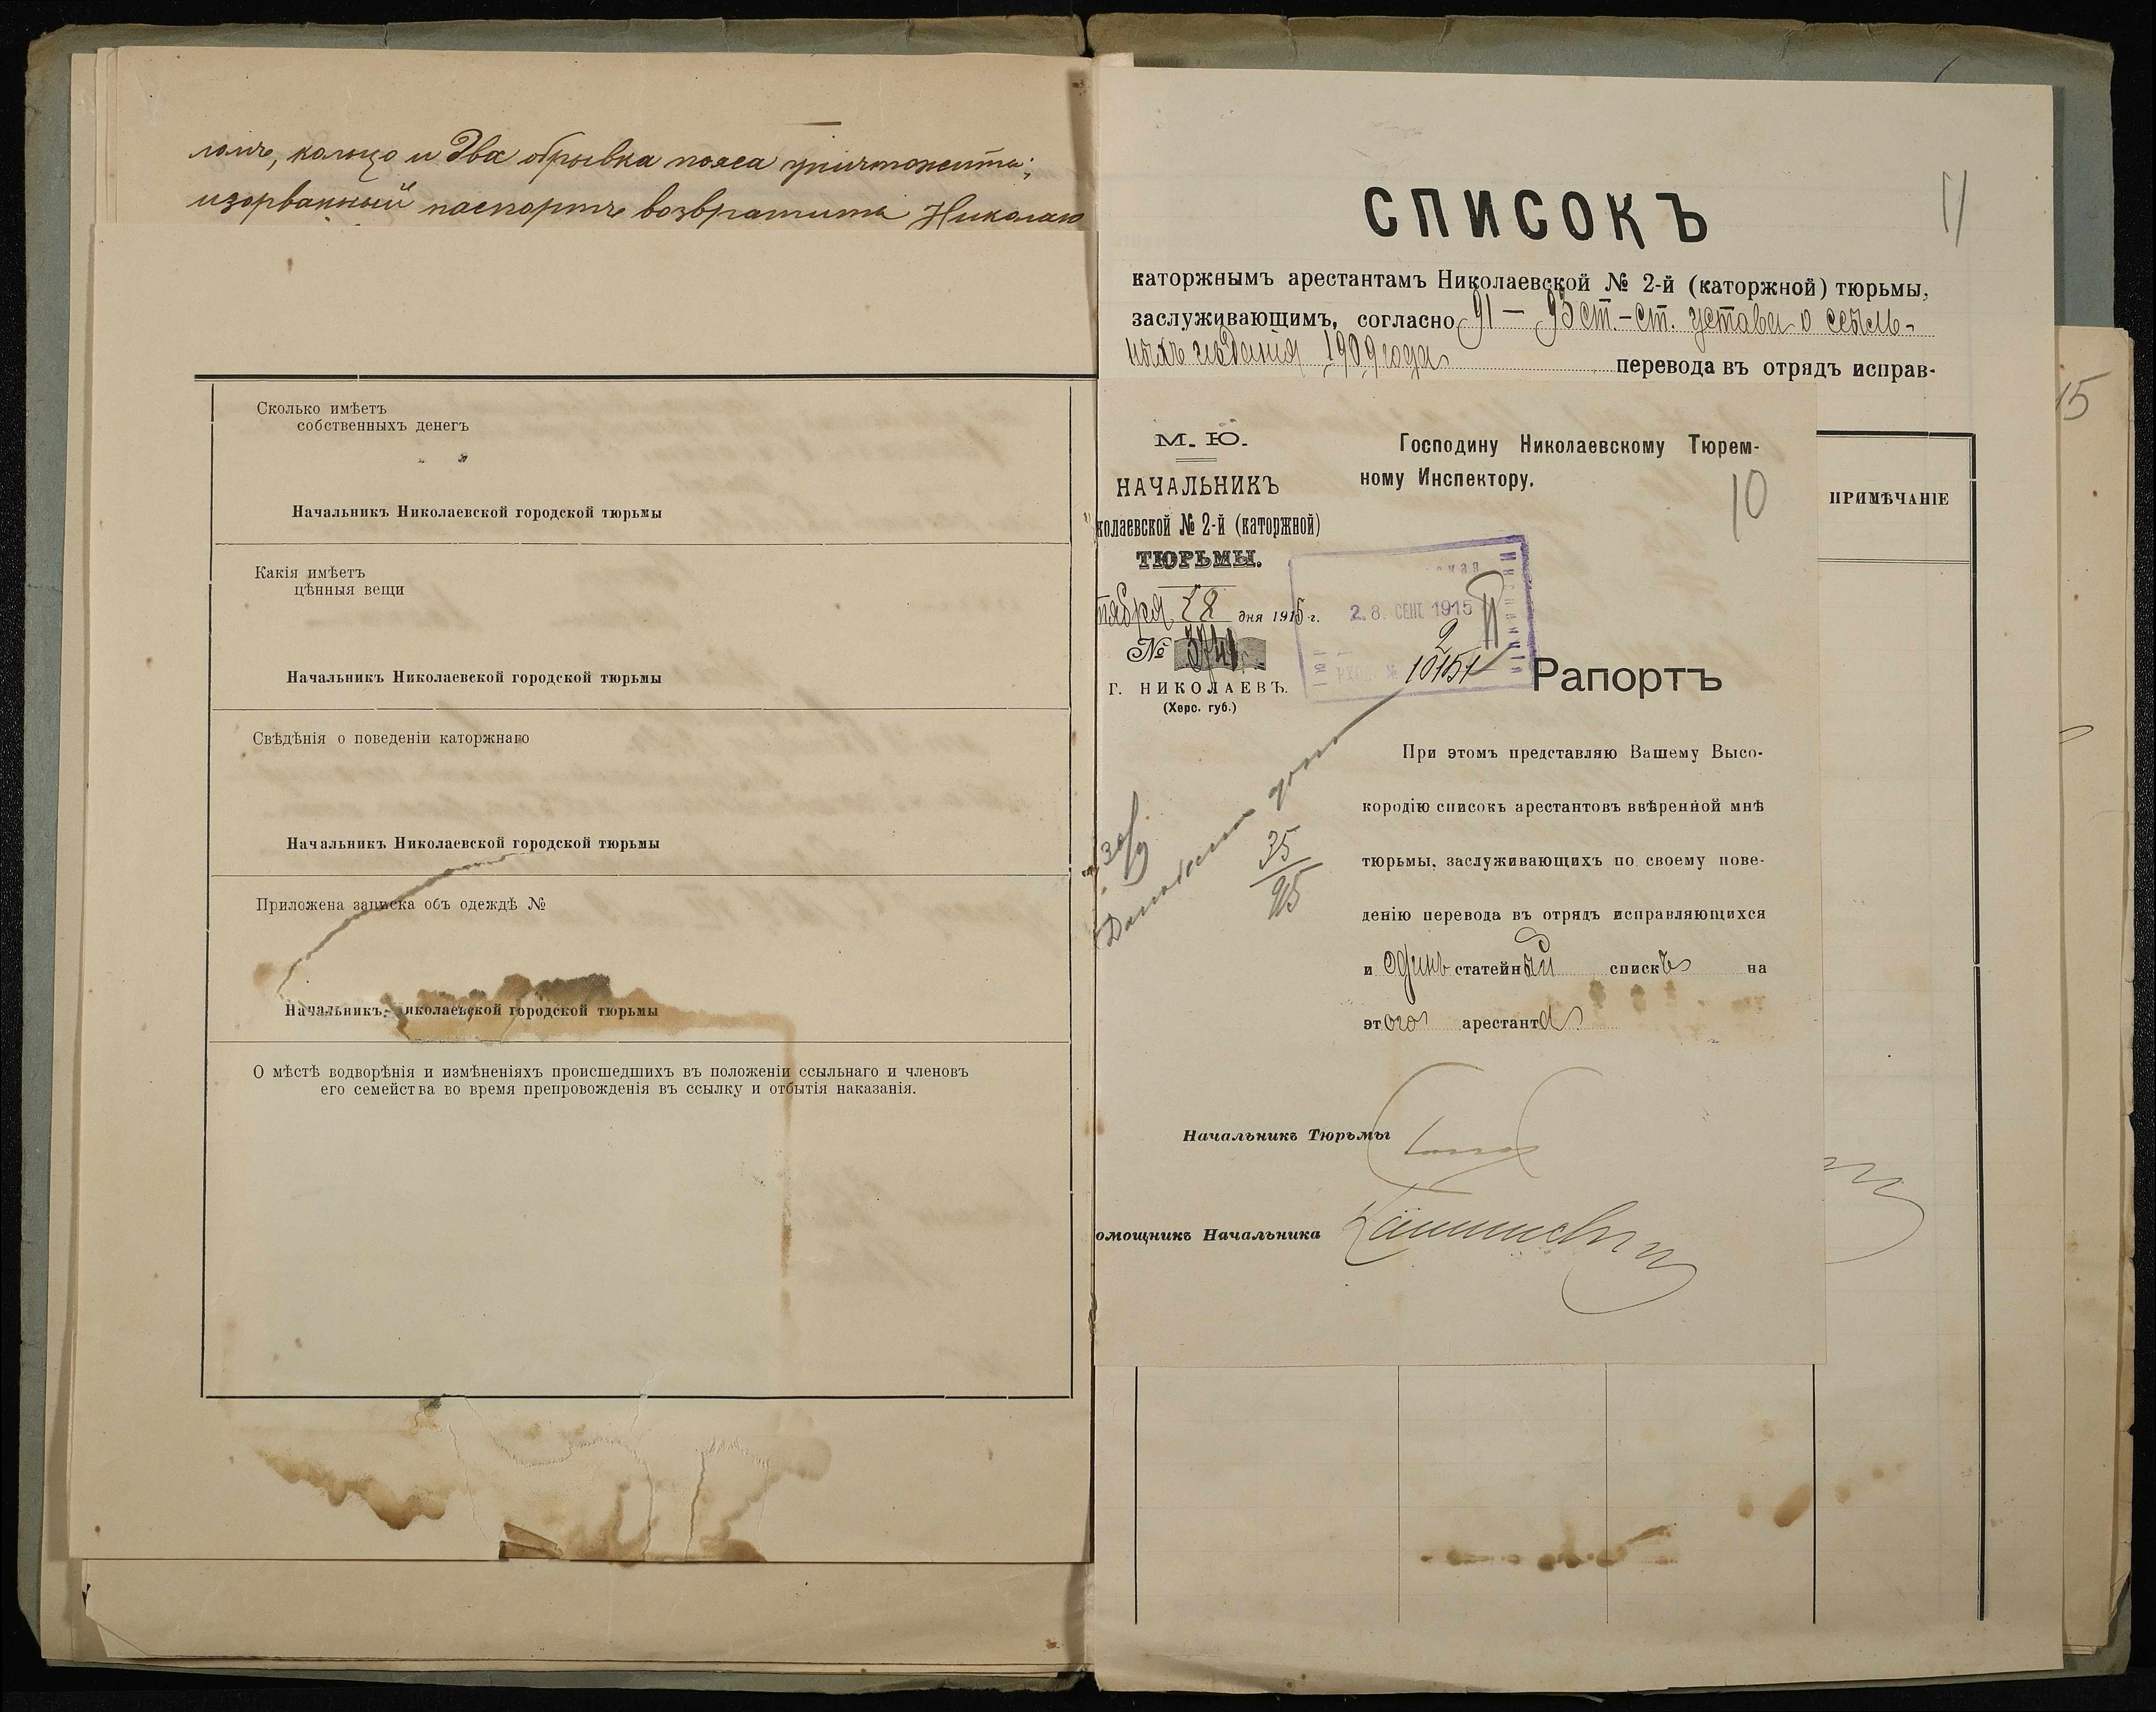 ломъ, кольцо и два обрывка пояса уничтожить;
изорванный паспортъ возвратить Николаю
Сколько имѣетъ
собственныхъ денегъ
Начальникъ Николаевской городской тюрьмы
Какія имѣетъ
цѣнныя вещи
Начальникъ Николаевской городской тюрьмы
Свѣдѣнія о поведеніи каторжнаго
Начальникъ Николаевской городской тюрьмы
Приложена записка объ одеждѣ №
Начальникъ иколаевской городской тюрьмы
О мѣстѣ водворѣнія и измѣненіяхъ происшедшихъ въ положеніи ссыльнаго и членовъ
его семейства во время препровожденія въ ссылку и отбытія наказанія.
11
СПИСОКЪ
каторжнымъ арестантамъ Николаевской № 2-й (каторжной) тюрьмы,
заслуживающимъ, согласно 91 — 93 ст.-ст. устава о ссыль-
ныхъ изданія 1909 года перевода въ отрядъ исправ-
15
ПРИМѢЧАНІЕ
М. Ю.
НАЧАЛЬНИКЪ
колаевской № 2-й (каторжной)
ТЮРЬМЫ.
тября 28 дня 1915 г.
№ 3741
Г. НИКОЛАЕВЪ.
(Херс. губ.)
Господину Николаевскому Тюрем-
ному Инспектору.
10
28 СЕНТ 1915
10151
Рапортъ
30/9
35
915
При этомъ представляю Вашему Высо-
кородію списокъ арестантовъ ввѣренной мнѣ
тюрьмы, заслуживающихъ по своему пове-
денію перевода въ отрядъ исправляющихся
и одинъ статейный списокъ на
этого арестанта
Начальникъ Тюрьмы
омощникъ Начальника